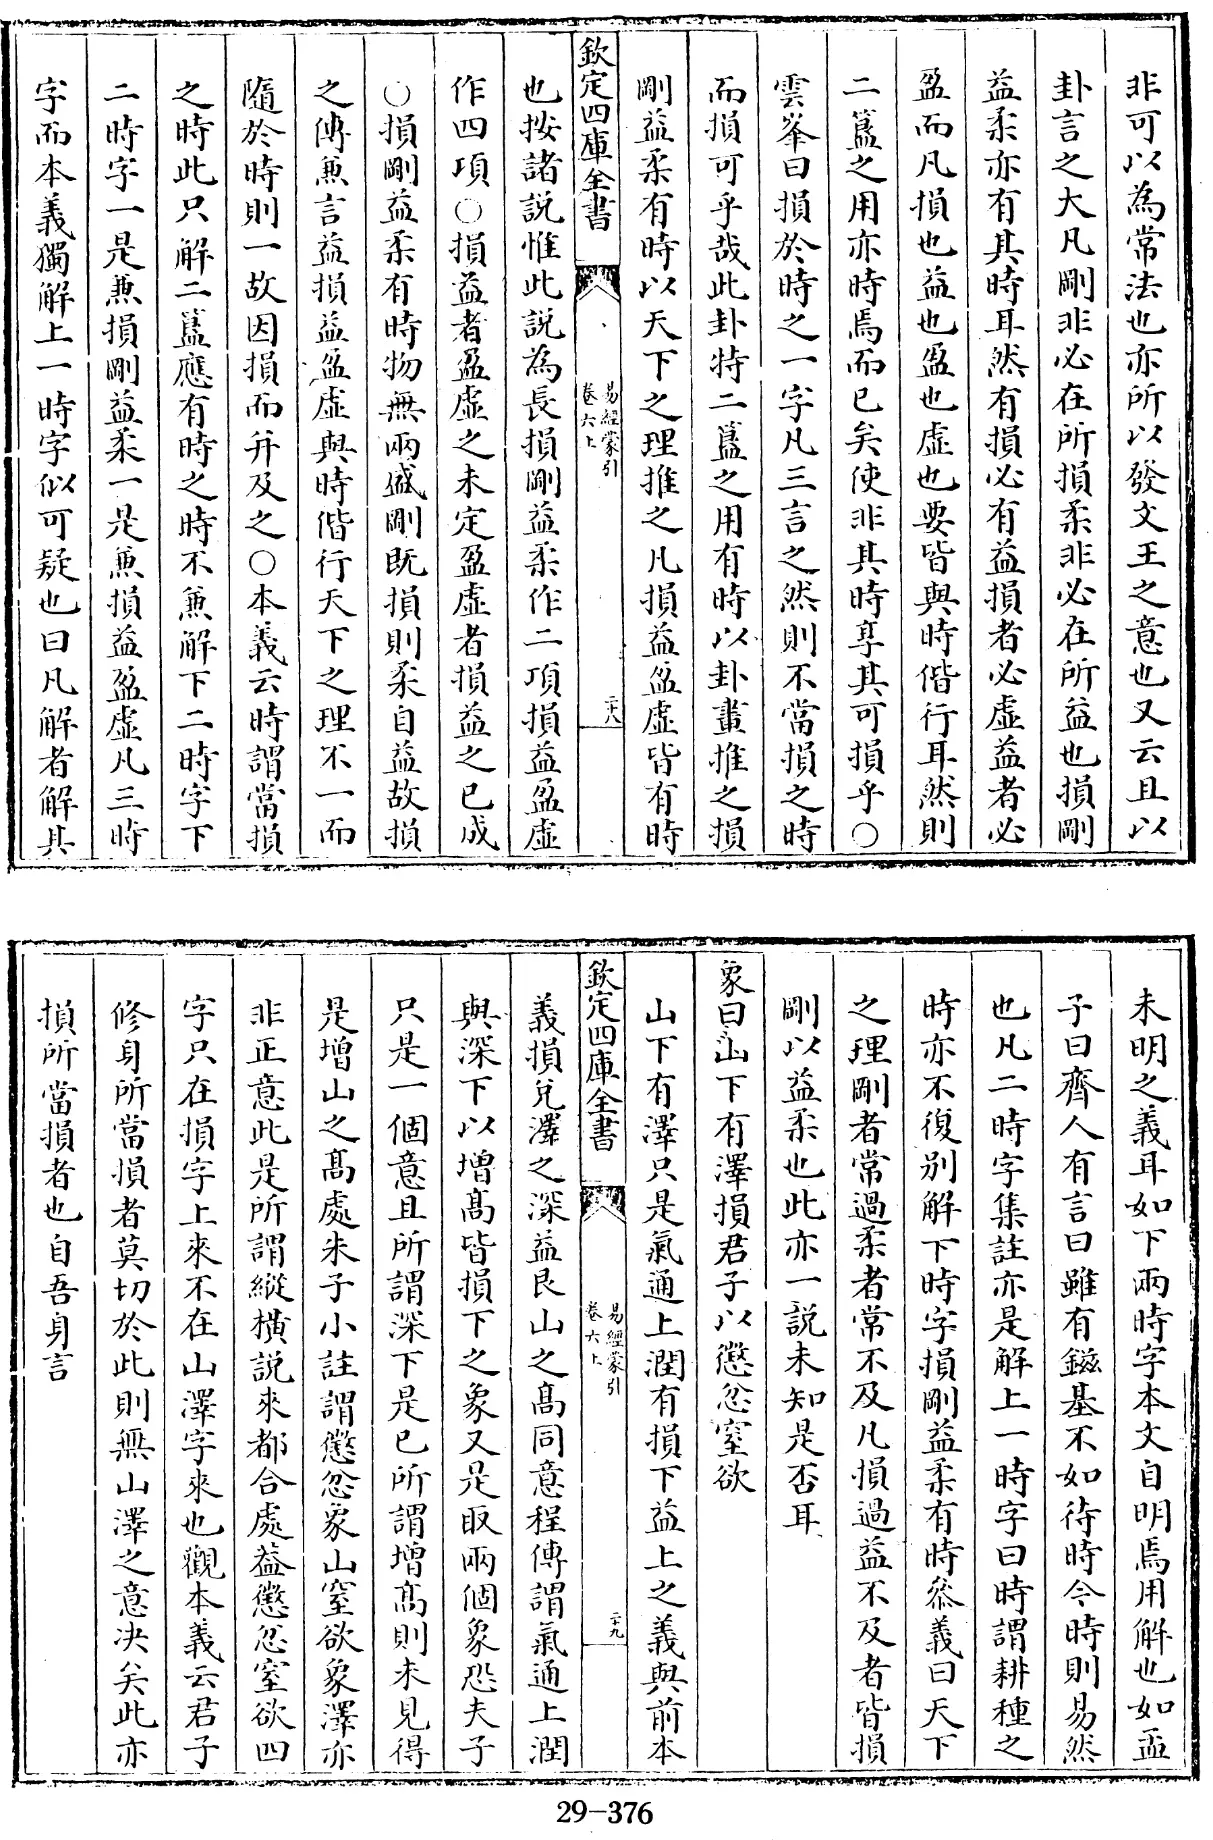 非可以為常法也亦所以發文王之意也又云且以
卦言之大凡剛非必在所損柔非必在所益也損剛
益柔亦有其時耳然有損必有益損者必虚益者必
盈而凡損也益也盈也虚也要皆與時偕行耳然則
二簋之用亦時焉而已矣使非其時享其可損乎○
雲峯曰損於時之一字凡三言之然則不當損之時
而損可乎哉此卦特二簋之用有時以卦畫推之損
剛益柔有時以天下之理推之凡損益盈虚皆有時
欽定四庫全書
易經蒙引
卷六上
二十八
也按諸説惟此説為長損剛益柔作二項損益盈虚
作四項○損益者盈虚之未定盈虚者損益之已成
○損剛益柔有時物無兩盛剛既損則柔自益故損
之傳兼言益損益盈虚與時偕行天下之理不一而
隨於時則一故因損而并及之○本義云時謂當損
之時此只解二簋應有時之時不兼解下二時字下
二時字一是兼損剛益柔一是兼損益盈虚凡三時
字而本義獨解上一時字似可疑也曰凡解者解其
未明之義耳如下兩時字本文自明焉用解也如孟
子曰齊人有言曰雖有鎡基不如待時今時則易然
也凡二時字集註亦是解上一時字曰時謂耕種之
時亦不復别解下時字損剛益柔有時叅義曰天下
之理剛者常過柔者常不及凡損過益不及者皆損
剛以益柔也此亦一説未知是否耳
象曰山下有澤損君子以懲忿窒欲
山下有澤只是氣通上潤有損下益上之義與前本
欽定四庫全書
易經蒙引
卷六上
二十九
義損兌澤之深益艮山之髙同意程傳謂氣通上潤
與深下以增髙皆損下之象又是取兩個象恐夫子
只是一個意且所謂深下是已所謂增髙則未見得
是增山之髙處朱子小註謂懲忿象山窒欲象澤亦
非正意此是所謂縱横説來都合處葢懲忿窒欲四
字只在損字上來不在山澤字來也觀本義云君子
修身所當損者莫切於此則無山澤之意决矣此亦
損所當損者也自吾身言
29-376